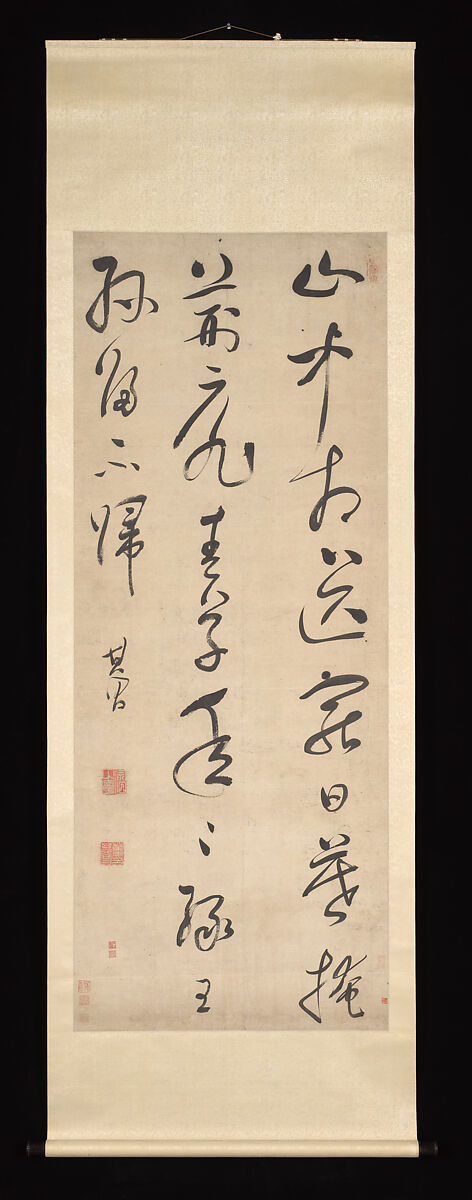 山中相送罷日暮掩
荊扉春草年〻綠王
孫歸不歸
其昌